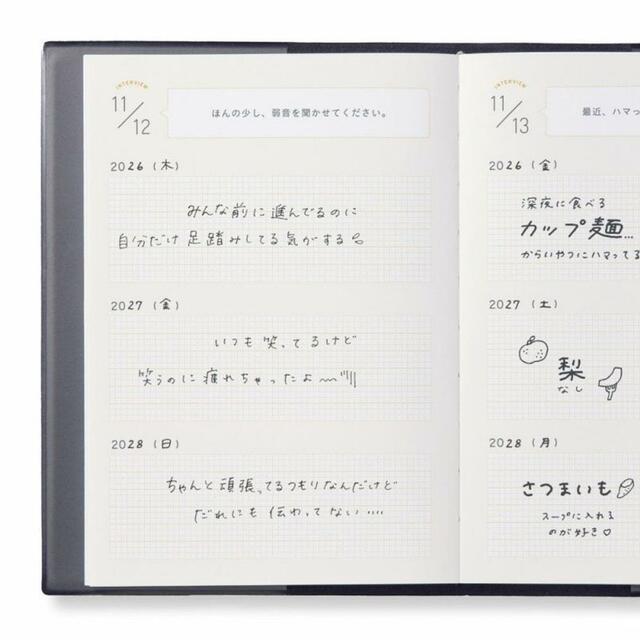 INTERVIEW
11/12
ほんの少し、弱音を聞かせてください。
2026(木)
みんな前に進んでるのに
自分だけ足踏みしてる気がする
2027(金)
いつも笑ってるけど
笑うのに疲れちゃったよ
2028(日)
ちゃんと頑張ってるつもりなんだけど
だれにも伝わってない....
INTERVIEW
11/13
最近、ハマっ
2026(金)
深夜に食べる
カップ麺...
からいやつにハマってる
2027(土)
梨
なし
2028(月)
さつまいも
スープに入れる
のが好き♡